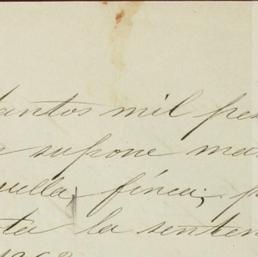 tantos mil pe
supone ma
uella, finca; p
ta la senten